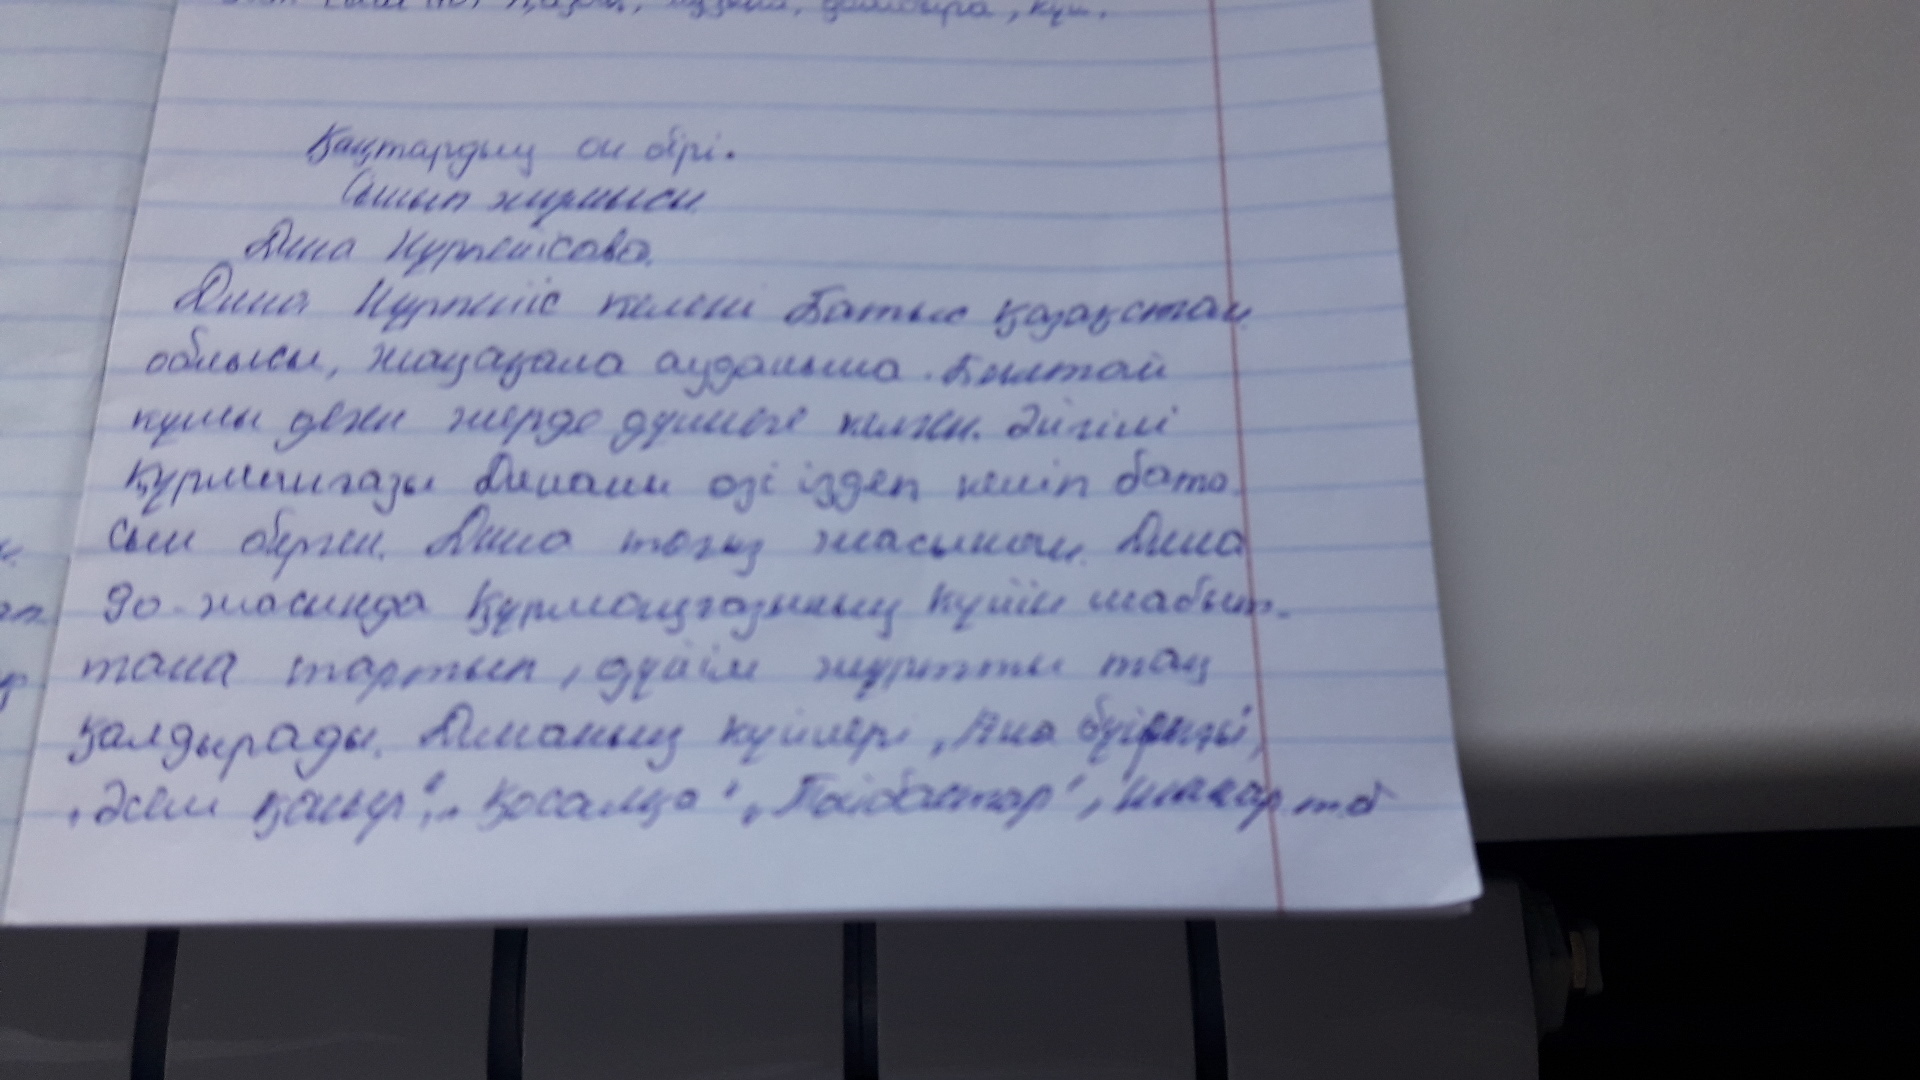 қазақ, музыка, домбыра, күй.
Қаңтардың он бірі.
Сынып жұмысы
Дина Нүрпейісова.
Дина Нүрпейіс келені Батыс қазақстан
облысы, жаңақала ауданына.
құмы деген жерде дүниеге келген. Әйгілі
Құрманғазы Динаны өзі іздеп келіп бата
сын берген. Дина тоғыз жасынан. Дина
90-жасында Құрмаңғазының күйін шабыт-
тана тартып, дүйім жұртты таң
қалдырады. Динаның күйлері „Ана бұйрығы",
„Әсем қоңыр", „Қосалқа" „Байбастар", т.б